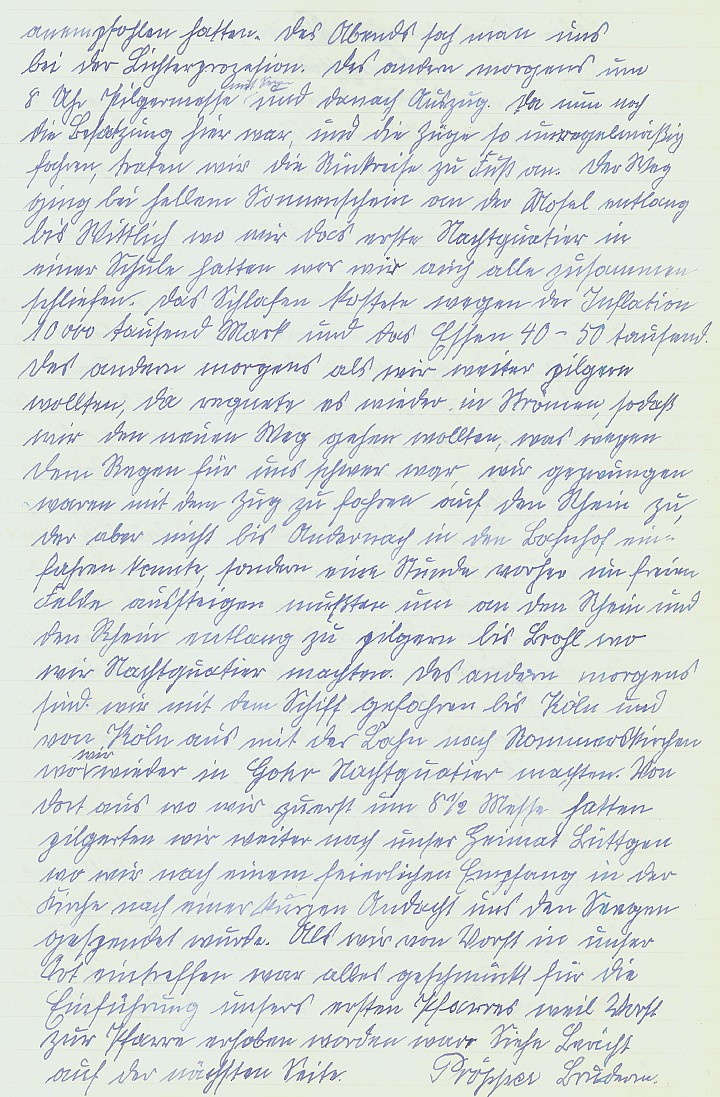 anempfohlen hatten. Des Abends sah man uns
bei der Lichterprozession. Des andern morgens um
8 Uhr Pilgermesse und danach Auszug. Da nun noch
die Besatzung hier war, und die Züge so unregelmäßig
fahren, traten wir die Rückreise zu Fuß an. Der Weg
ging bei hellem Sonnenschein an der Mosel entlang
bis Wittlich wo wir das erste Nachtquatier in
einer Schule hatten wo wir auch alle zusammen
schliefen. Das Schlafen kostete wegen der Inflation
10000 tausend Mark und das Essen 40 - 50 tausend.
Des andern morgens als wir weiter pilgern
wollten, da regnete es wieder in Strömen, sodaß
wir den neuen Weg gehen wollten, was wegen
dem Regen für uns schwer war, wir gezwungen
waren mit dem Zug zu fahren auf den Rhein zu,
der aber nicht bis Andernach in den Bahnhof ein-
fahren konnte, sondern eine Stunde vorher im freien
Felde aussteigen mußten um an den Rhein und
den Rhein entlang zu pilgern bis Brohl wo
wir Nachtquatier machten. Des andern morgens
sind wir mit dem Schiff gefahren bis Köln und
von Köln aus mit der Bahn nach Rommerskirchen
wo wir wieder in Gohr Nachtquatier machten. Von
dort aus wo wir zuerst um 6 1/2 Messe hatten
pilgerten wir weiter nach unser Heimat Büttgen
wo wir nach einem feierlichen Empfang in der
Kirche nach einer kurzen Andacht uns den Seegen
gespendet wurde. Als wir von Vorst in unser
Ort eintreffen war alles geschmückt für die
Einführung unsers ersten Pfarres weil Vorst
zur Pfarre erhoben worden war. Siehe Bericht
auf der nächsten Seite. Pröpper Bruderm.